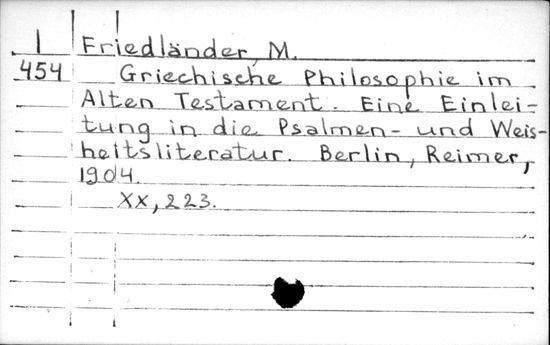 I Friedländer, M.
454 Griechische Philosophie im
Alten Testament. Eine Einlei-
tung in die Psalmen- und Weis-
heitsliteratur. Berlin, Reimer,
1904.
XX, 223.